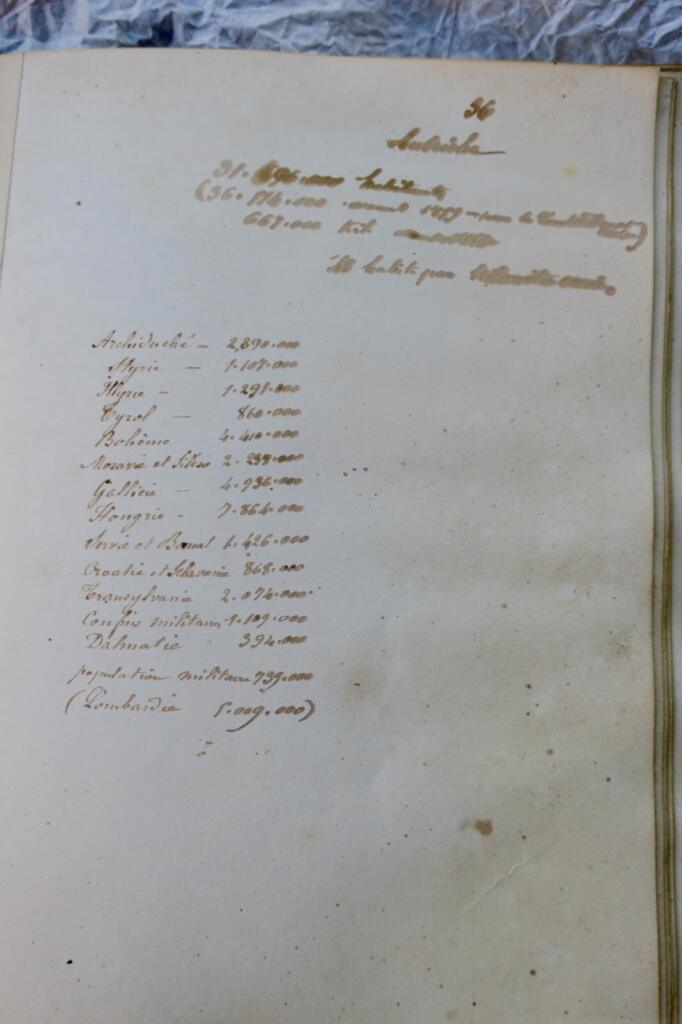 36
Autriche
31. 696.000 habitants
(36. 174.000 avant 1859 - avec le
667.000 kil.
habit. par
Archiduché - 2,890.000
Styrie - 1.107.000
Illyrie - 1.291.000
Tyrol - 860.000
Bohême 4.410.000
Moravie et Silésie 2.238.000
Gallicie - 4.936.000
Hongrie - 7.864.000
Servie et Banat 1.426.000
Croatie et Sclavonie 868.000
Transylvanie 2.074.000
Confins militaires 1.109.000
Dalmatie 394.000
population militaire 739.000
(Lombardie 5.009.000)